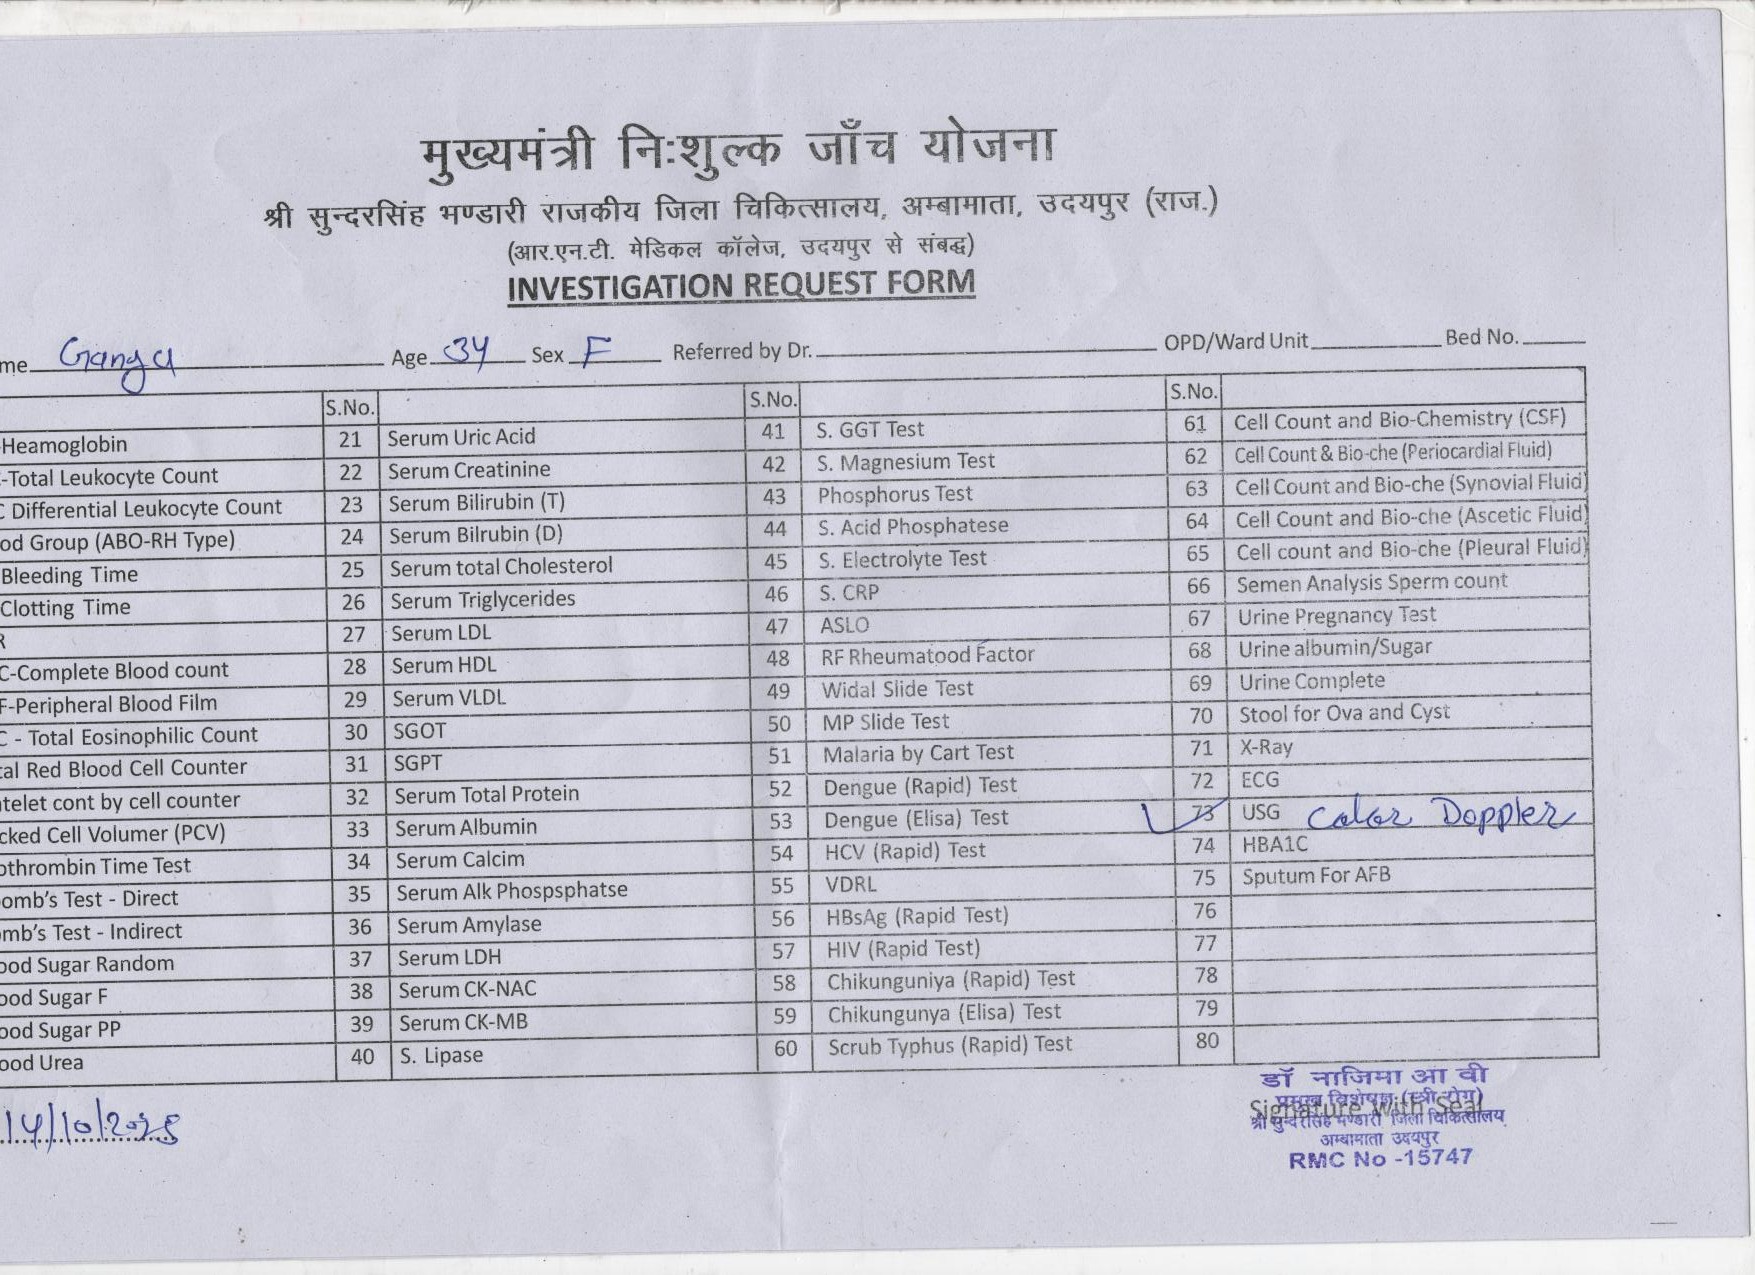 मुख्यमंत्री निःशुल्क जाँच योजना
श्री सुन्दरसिंह भण्डारी राजकीय जिला चिकित्सालय, अम्बामाता, उदयपुर (राज.)
(आर.एन.टी. मेडिकल कॉलेज, उदयपुर से संबद्ध)
INVESTIGATION REQUEST FORM
me Ganga Age 34 Sex F Referred by Dr. OPD/Ward Unit Bed No.
S.No. S.No. S.No.
-Heamoglobin 21 Serum Uric Acid 41 S. GGT Test 61 Cell Count and Bio-Chemistry (CSF)
-Total Leukocyte Count 22 Serum Creatinine 42 S. Magnesium Test 62 Cell Count & Bio-che (Periocardial Fluid)
C Differential Leukocyte Count 23 Serum Bilirubin (T) 43 Phosphorus Test 63 Cell Count and Bio-che (Synovial Fluid)
od Group (ABO-RH Type) 24 Serum Bilrubin (D) 44 S. Acid Phosphatese 64 Cell Count and Bio-che (Ascetic Fluid)
Bleeding Time 25 Serum total Cholesterol 45 S. Electrolyte Test 65 Cell count and Bio-che (Pleural Fluid)
Clotting Time 26 Serum Triglycerides 46 S. CRP 66 Semen Analysis Sperm count
R 27 Serum LDL 47 ASLO 67 Urine Pregnancy Test
C-Complete Blood count 28 Serum HDL 48 RF Rheumatood Factor 68 Urine albumin/Sugar
F-Peripheral Blood Film 29 Serum VLDL 49 Widal Slide Test 69 Urine Complete
C - Total Eosinophilic Count 30 SGOT 50 MP Slide Test 70 Stool for Ova and Cyst
tal Red Blood Cell Counter 31 SGPT 51 Malaria by Cart Test 71 X-Ray
telet cont by cell counter 32 Serum Total Protein 52 Dengue (Rapid) Test 72 ECG
cked Cell Volumer (PCV) 33 Serum Albumin 53 Dengue (Elisa) Test 73 USG Color Doppler
othrombin Time Test 34 Serum Calcim 54 HCV (Rapid) Test 74 HBA1C
omb's Test - Direct 35 Serum Alk Phospsphatse 55 VDRL 75 Sputum For AFB
mb's Test - Indirect 36 Serum Amylase 56 HBsAg (Rapid Test) 76
ood Sugar Random 37 Serum LDH 57 HIV (Rapid Test) 77
ood Sugar F 38 Serum CK-NAC 58 Chikunguniya (Rapid) Test 78
ood Sugar PP 39 Serum CK-MB 59 Chikungunya (Elisa) Test 79
ood Urea 40 S. Lipase 60 Scrub Typhus (Rapid) Test 80
डॉ नाजिमा आ वी
प्रमुख विशेषज्ञ (स्त्री रोग)
Signature With Seal
श्री सुन्दरसिंह भण्डारी जिला चिकित्सालय
अम्बामाता उदयपुर
RMC No -15747
14/10/2025